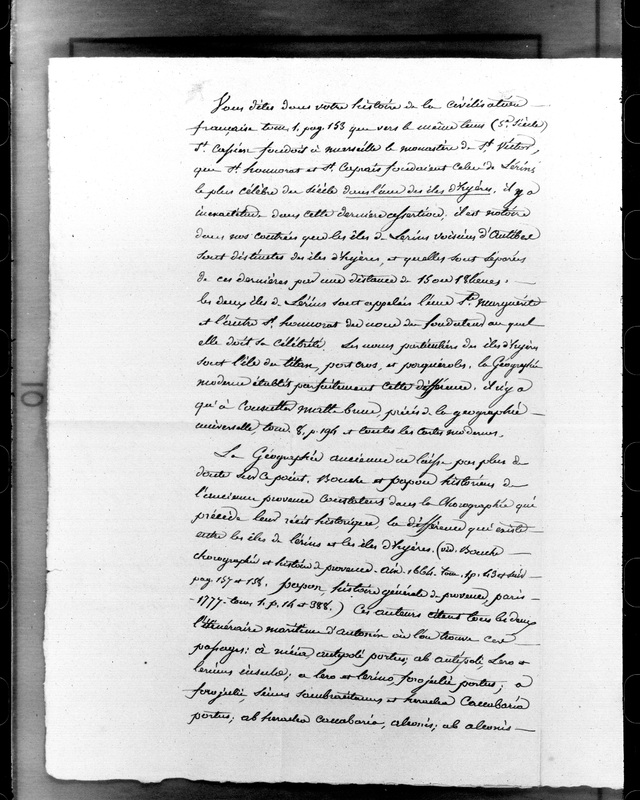 Vous dites dans votre histoire de la civilisation
française tom. 1. pag. 133 que vers le même tems (5e. Siècle)
St. Cassien fondoit à marseille le monastère de St. Victor,
que St. honnorat et St. Caprais fondaient celui de Lérins
le plus célèbre du siècle dans l'une des iles d'hyères. il y a
inexactitude dans cette dernière assertion. il est notoire
dans nos contrées que les îles de Lerins voisines d'Antibes
sont distinctes des iles d'hyères, et qu'elles sont séparées
de ces dernières par une distance de 15 ou 18 lieues.
les deux iles de Lérins sont appelées l'une Ste. Marguerite
et l'autre St. honnorat du nom du fondateur au quel
elle doit sa célébrité. Les noms particuliers des iles d'hyères
sont l'île du titan, port cros, et porqueroles. la Géographie
moderne établit parfaitement cette différence. il n'y a
qu'à consulter malte brun, précis de la geographie
universelle, tom. 8. p. 194 et toutes les cartes modernes.
La Géographie ancienne ne laisse pas plus de
doute sur ce point. Bouche et papon historiens de
l'ancienne provence constatent dans la Chorographie qui
précède leur récit historique, la différence qui existe
entre les iles de lérins et les iles d'hyères. (vid. Bouche
chorographie et histoire de provence. Aix. 1664. tom. 1 p. 43 et
pag. 157 et 158. papon, histoire générale de provence, paris
1777. tom. 1. p. 14 et 388.) Ces auteurs citent tous les deux
l'itinéraire maritime d'antonin où l'on trouve ces
passages: à nicia antipoli portus; ab antipoli, Lero et
lerinus insulæ; a lero et lerino, foro julii portus; a
foro julii, sinus Sambracitanus et heraclea Caccabaria
portus; ab heraclea Caccabaria, alconis; ab alconis